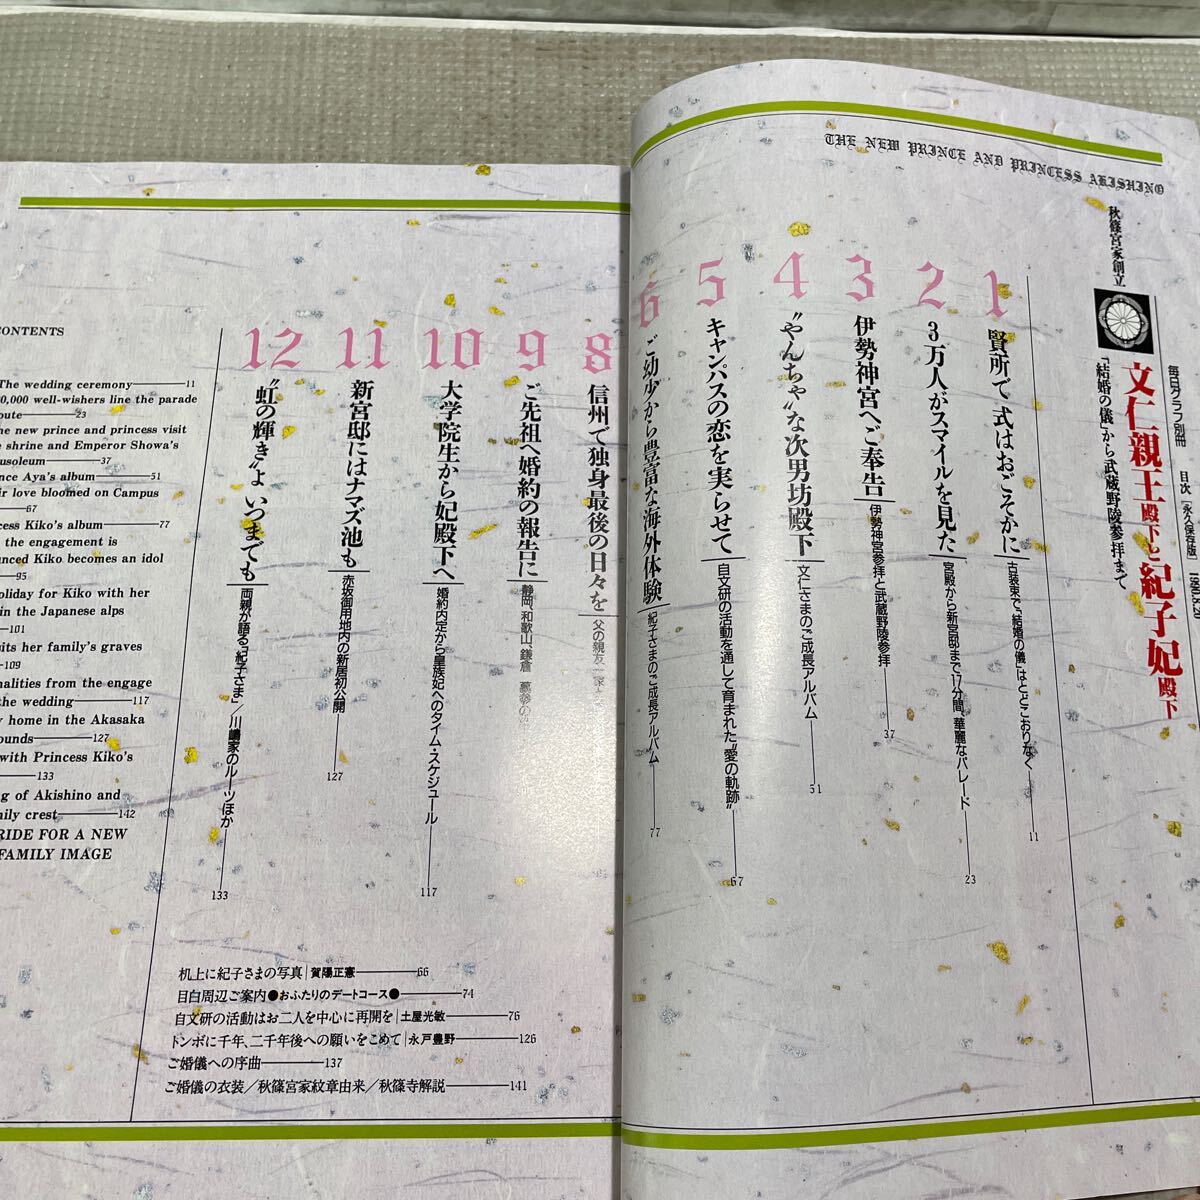 THE NEW PRINCE AND PRINCESS AKISHINO
毎日グラフ別冊 目次 [永久保存版] 1990.8.20
秋篠宮家創立
文仁親王殿下と紀子妃殿下
「結婚の儀」から武蔵野陵参拝まで
1
賢所で 式はおごそかに
古装束で「結婚の儀」はとどこおりなく
11
2
3万人がスマイルを見た
宮殿から新宮邸まで17分間、華麗なパレード
23
3
伊勢神宮へご奉告
伊勢神宮参拝と武蔵野陵参拝
37
4
〝やんちゃ〟な次男坊殿下
文仁さまのご成長アルバム
51
5
キャンパスの恋を実らせて
自文研の活動を通して育まれた〝愛の軌跡〟
67
6
ご幼少から豊富な海外体験
紀子さまのご成長アルバム
77
8
信州で独身最後の日々を
父の親友
9
ご先祖へ婚約の報告に
静岡、和歌山、鎌倉
10
大学院生から妃殿下へ
婚約内定から皇族妃へのタイム・スケジュール
117
11
新宮邸にはナマズ池も
赤坂御用地内の新居初公開
127
12
〝虹の輝き〟よ いつまでも
両親が語る「紀子さま」／川嶋家のルーツほか
133
机上に紀子さまの写真|賀陽正憲 66
目白周辺ご案内●おふたりのデートコース● 74
自文研の活動はお二人を中心に再開を|土屋光敏 76
トンボに千年、二千年後への願いをこめて|永戸豊野 126
ご婚儀への序曲 137
ご婚儀の衣装／秋篠宮家紋章由来／秋篠寺解説 141
CONTENTS
The wedding ceremony 11
0,000 well-wishers line the parade
oute 23
new prince and princess visit
shrine and Emperor Showa's
usoleum 37
nce Aya's album 51
ir love bloomed on Campus
67
cess Kiko's album 77
the engagement is
unced Kiko becomes an idol
95
oliday for Kiko with her
in the Japanese alps
101
its her family's graves
109
nalities from the engage
the wedding 117
y home in the Akasaka
ounds 127
with Princess Kiko's
133
g of Akishino and
mily crest 142
RIDE FOR A NEW
FAMILY IMAGE